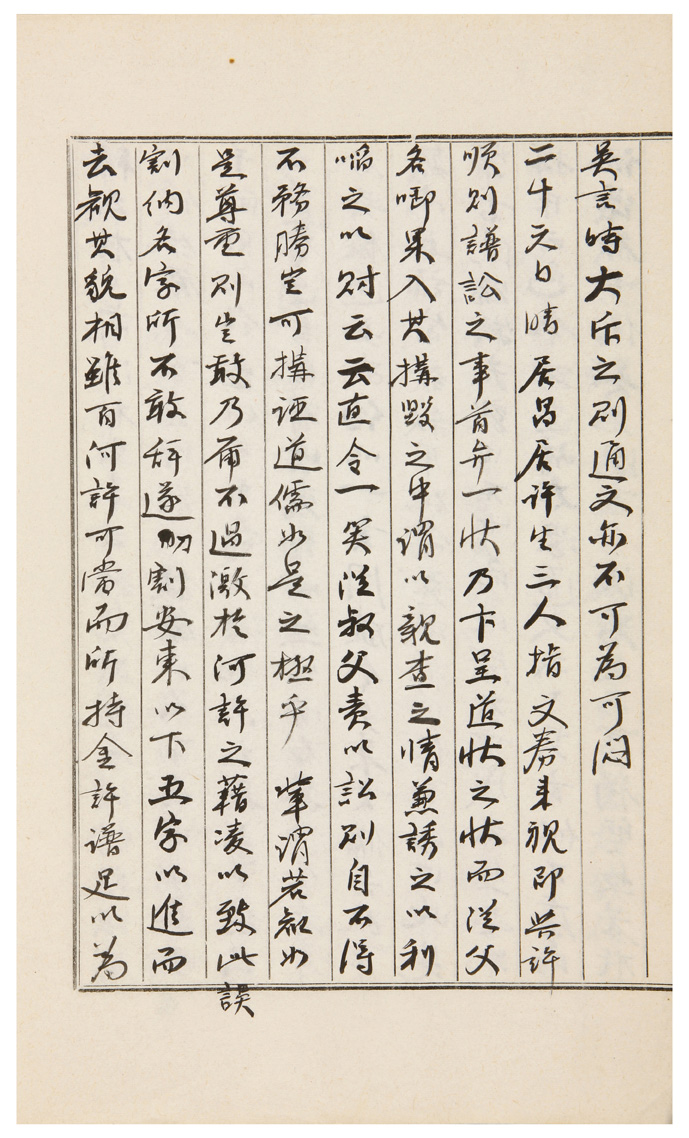 英言時大所之則通文亦不可為可悶
二十六日晴居昌居許生三人指文券來視即吳許
順則譜訟之事首弁一狀乃卞呈道狀之狀而從父
名啣果入其搆毀之中謂以親查之情兼誘之以利
啗之以財云云直令一笑從叔父責以訟則自不得
不務勝豈可搆誣道儒如是之極乎 輩謂若知如
是尊重則豈敢乃爾不過激於河許之藉凌以致此誤
割納名字所不敢辞遂 割安東以下五字以進而
去觀其貌相雖百河許可當而所持金許譜足以為